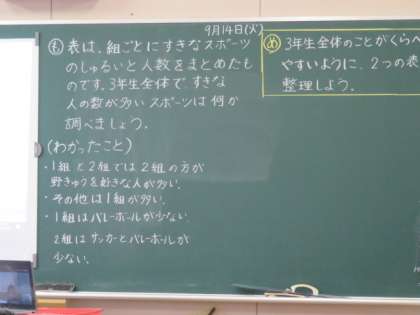 9月14日(火)
も 表は、組ごとにすきなスポーツ
のしゅるいと人数をまとめたも
のです。3年生全体で、すきな
人の数が多いスポーツは何か
調べましょう。
(わかったこと)
・1組と2組では2組の方が
野きゅうを好きな人が多い。
・その他は1組が多い。
・1組はバレーボールが少ない。
2組はサッカーとバレーボールが
少ない。
め 3年生全体のことがくらべ
やすいように、2つの表
整理しよう。